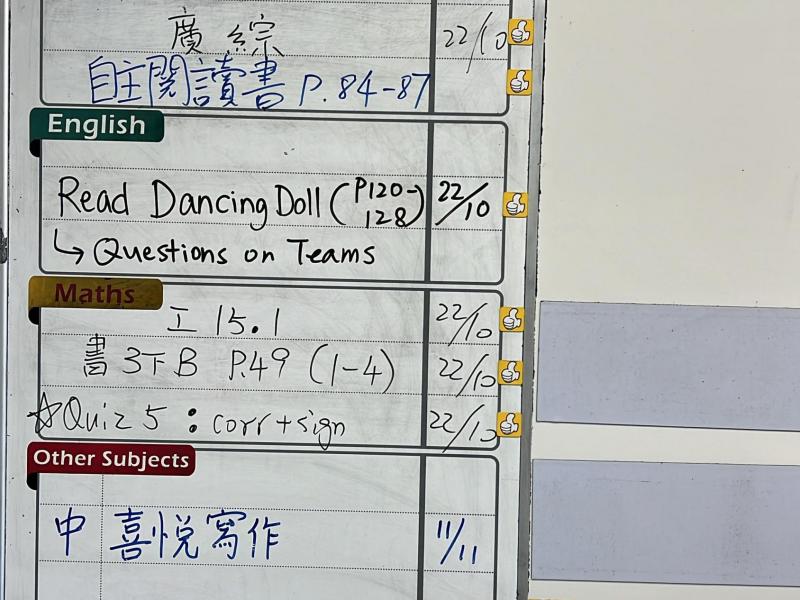 廣 綜 22/10
自主閱讀書 P.84-87
English
Read Dancing Doll (P120-128) 22/10
↳ Questions on Teams
Maths
工 15.1 22/10
書 3下B P.49 (1-4) 22/10
☆Quiz 5 : corr+sign 22/10
Other Subjects
中 喜悅寫作 11/11